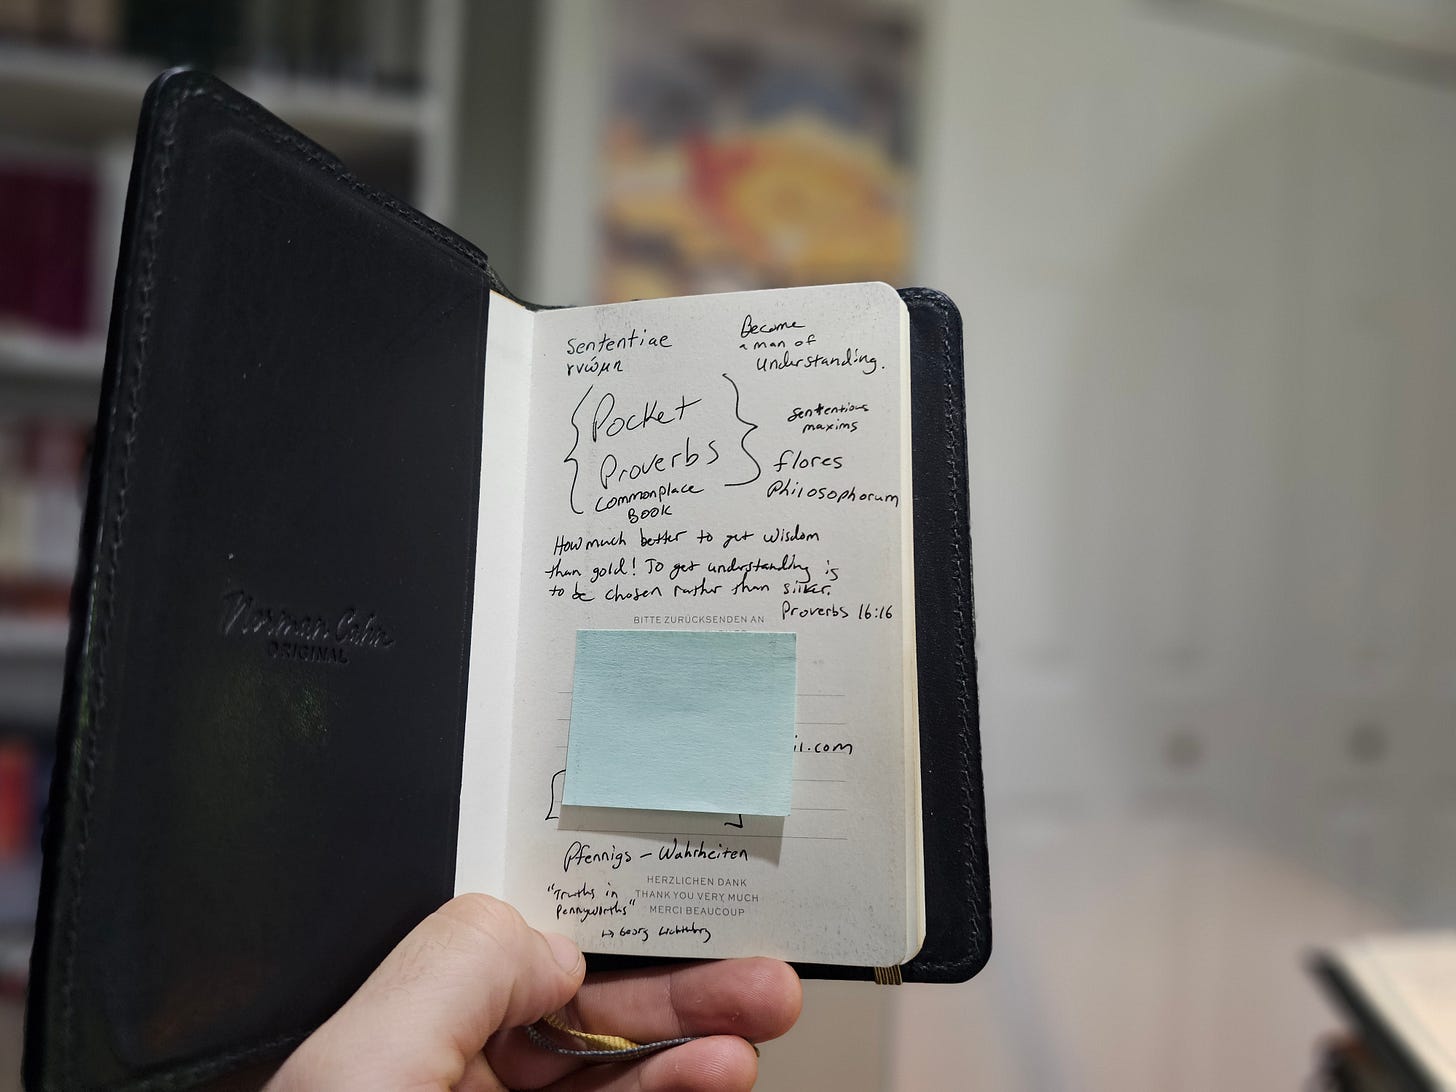 Norman Cahn
ORIGINAL
Sententiae
γνώμη
Become
a man of
Understanding.
Pocket
Proverbs
Commonplace
Book
sententious
maxims
flores
Philosophorum
How much better to get wisdom
than gold! To get understanding is
to be chosen rather than silver.
Proverbs 16:16
BITTE ZURÜCKSENDEN AN
il.com
Pfennigs – Wahrheiten
"Truths in
Pennyworths"
↳ Georg Lichtenberg
HERZLICHEN DANK
THANK YOU VERY MUCH
MERCI BEAUCOUP